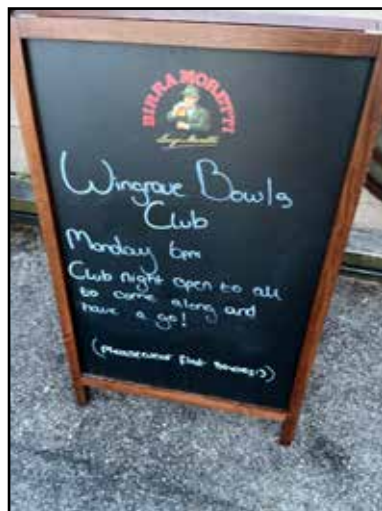 BIRRA MORETTI
Wingrave Bowls
Club
Monday 6pm
Club night open to all
to come along and
have a go!
(please wear flat shoes :))